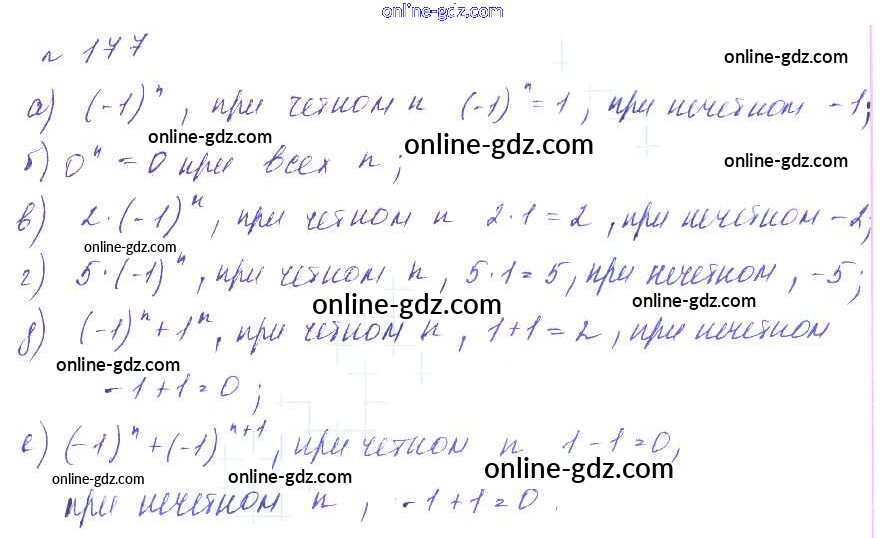 online-gdz.com
№ 177
online-gdz.com
а) (-1)ⁿ, при четном n (-1)ⁿ = 1, при нечетном -1;
online-gdz.com online-gdz.com
б) 0ⁿ = 0 при всех n;
online-gdz.com
в) 2·(-1)ⁿ, при четном n 2·1 = 2, при нечетном -2;
online-gdz.com
г) 5·(-1)ⁿ, при четном n, 5·1 = 5, при нечетном, -5;
online-gdz.com online-gdz.com
д) (-1)ⁿ + 1ⁿ, при четном n, 1+1 = 2, при нечетном
online-gdz.com
-1+1=0;
е) (-1)ⁿ + (-1)ⁿ⁺¹, при четном n 1-1=0,
online-gdz.com online-gdz.com online-gdz.com
при нечетном n, -1+1=0.